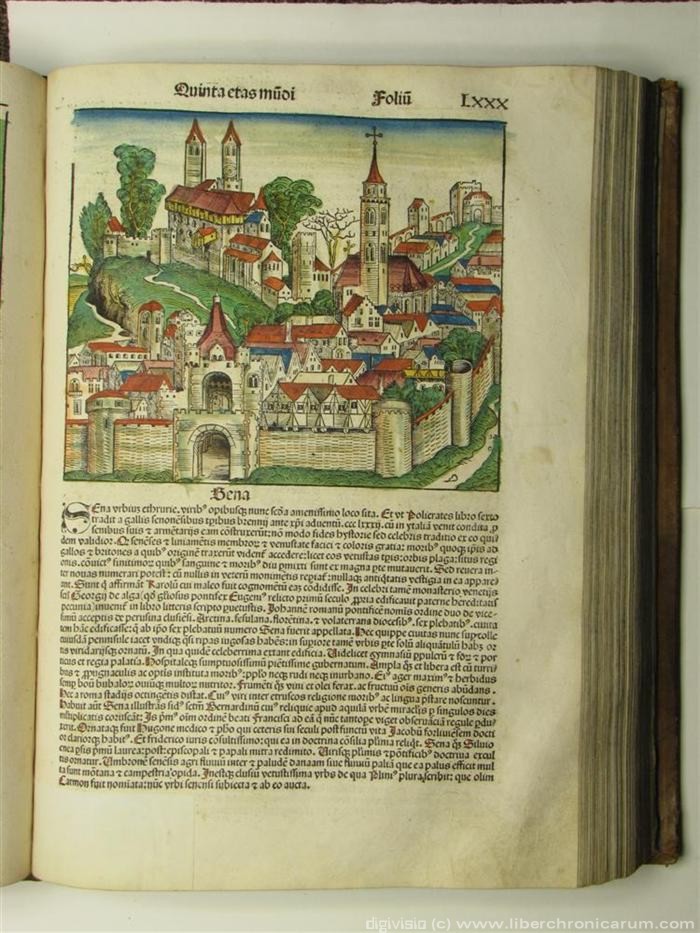 Quinta etas mūdi Foliū LXXX
Sena
SEna vrbiuz ethrurie. virib⁹ opibusqꝫ nunc scďa amenissimo loco sita. Et vt Policrates libro sexto
tradit a gallis senonēsibus tꝑibus brennij ante xp̄i aduentū. ccc lxxxij. cū in ytaliā venit condita ꝑ
senibus suis ⁊ armētarijs eam cōstruxerūt: nō modo fides hystorie sed celebris traditio ex eo qui
dem validior. Q senēses ⁊ liniamētis membroꝝ ⁊ venustate faciei ⁊ coloris gratia: morib⁹ quoqꝫ ip̄is ad
gallos ⁊ britones a quib⁹ originē traxerūt vident̄ accedere: licet eos vetustas tꝑis: orbis plaga: situs regi
onis. finitimoꝝ quib⁹ sanguine ⁊ morib⁹ diu pmixti sunt ex magna ꝑte mutauerit. Sed reuera in
ter nouas numerari potest: cū nullis in veterū monumētis repiat̄: nullaqꝫ antiq̄tatis vestigia in ea appare
ant. Sunt q̄ affirmāt Karolū cui maleo fuit cognomētū eaꝫ cōdidisse. In celebri tamē monasterio venetijs
sc̄i Georgij de alga (qd̄ gliosus pontifex Eugeni⁹ relicto primū seculo ꝓpria edificauit paterne hereditatis
pecunia) inuenit̄ in libro litteris scripto vetustis. Johannē romanū pontificē nomīs ordine duo de vice-
simū acceptis de perusina clusiēsi. Aretina. fesulana. florētina. ⁊ volaterrana diocesib⁹. sex plebatib⁹. ciuita
tem hāc edificasse: q̄ ab ip̄o sex plebatuū numero Sena fuerit appellata. Hec quippe ciuitas nunc suꝑ colle
cuiusdā peninsule iacet vndiqꝫ q̄si ripas iugosas habēs: in supiore tamē vrbis ꝑte solū aliquātulū habꝫ or
tis viridarijsqꝫ ornatū. In qua quidē celeberrima extant edificia. Videlicet gymnasiū ppulcrū ⁊ foꝝ ⁊ por
ticus et regia palatia. Hospitaleqꝫ sumptuosissimū pietissime gubernatum. Ampla q̄ꝫ et libera est cū turri-
bus ⁊ ꝓpugnaculis ac optis instituta morib⁹: ppl̄o neqꝫ rudi neqꝫ inurbano. Et⁹ ager maxim⁹ ⁊ herbidus
semp boū bubaloꝝ ouiūqꝫ multoꝝ nutritor. Frumēti q̄ꝫ vini et olei ferax. ac fructuū oīs generis abūdans.
Hec a roma stadijs octingētis distat. Cui⁹ viri inter etruscos religione morib⁹ ac lingua p̄stare noscuntur.
Habuit aūt Sena illustrās sid⁹ sctm̄ Bernardinū cui⁹ reliquie apud aquilā vrbē miraclis ꝑ singulos dies
multiplicatis coruscāt: Is pm̄⁹ oīm ordinē beati Francisci ad eā q̄ nūc tantope viget obseruāciā regule pdu-
xerit. Ornataqꝫ fuit Hugone medico ⁊ ph̄o qui ceteris sui seculi post functū vita Jacobū forliuiēsem docti
or clariorqꝫ habit⁹. Et friderico iuris cōsultissimo: qui ea in doctrina cōsilia plima reliq̄t. Sena q̄ꝫ Siluio
enea pius pm̄ū laurea: post: episcopali ⁊ papali mitra redimito. Utrisqꝫ plimis ⁊ pōtificib⁹ doctrina excul
tis ornatur. Umbronē senēsis agri fluuiū inter ⁊ paludē danaam siue fluuiū paliā que ea palus efficit mul
ta sunt mōtana ⁊ campestria opida. Inestqꝫ clusiū vetustissima vrbs de qua Plini⁹ plura scribit: que olim
Camon fuit noniata: nūc vrbi senensi subiecta ⁊ ab eo aucta.
digivisio (c) www.liberchronicarum.com